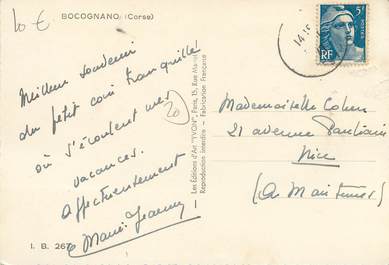 10 €
BOCOGNANO (Corse)
Meilleur souvenir
du petit coin tranquille
où s'écoulent mes
vacances.
Affectueusement
Marie-Jeanne
I. B. 267
20
Les Editions d'Art "YVON", Paris, 15, Rue Martel
Reproduction interdite - Fabrication Française
14 15
5F
POSTES
RF
Mademoiselle Cohen
21 avenue
Nice
(Alpes Maritimes)